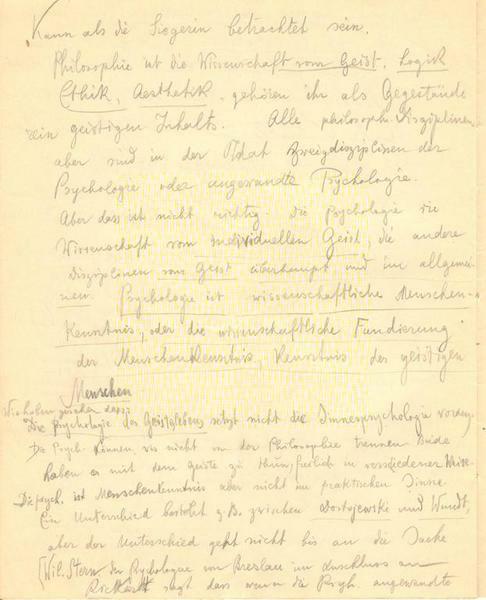 Kann als die Siegerin betrachtet sein.
Philosophie ist die Wissenschaft vom Geist. Logik
Ethik, Aesthetik gehören ihr als Gegestände
rein geistigen Inhalts. Alle philosoph. Disziplinen
aber sind in der That Zweigdisziplinen der
Psychologie oder angewandte Psychologie.
Aber dass ist nicht richtig. Die Psychologie die
Wissenschaft vom Individuellen Geist, die andere
Disziplinen vom Geist überhaupt und im allgemei-
nen. Psychologie ist wissenschaftliche Menschen-
Kenntnis, oder die wissenschaftliche Fundierung
der MenschenKenntnis, Kenntnis des geistigen
Menschen
Die Psychologie des Geisteslebens setzt nicht die Sinnespsychologie voraus
Die Psych. können wir nicht von der Philosophie trennen Beide
haben es mit dem Geiste zu thun, freilich in verschiedener Weise.
Die psych. ist Menschenkenntnis aber nicht im praktischen Sinne
Ein Unterschied besteht z.B. zwischen Dostojewski und Wundt,
aber der Unterschied geht nicht bis an die Sache
(Wil. Stern der Psychologe von Breslau im Anschluss an
Rickert sagt dass wenn die Psych. angewandte